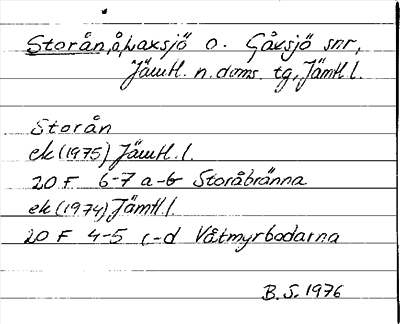 Storån, å, Laxsjö o. Gåxsjö snr,
Jämtl. n. doms. tg, Jämtl l.
Storån
ek (1975) Jämtl. l.
20 F 6-7 a-b Storåbränna
ek (1974) Jämtl.
20 F 4-5 c-d Våtmyrbodarna
B.S. 1976